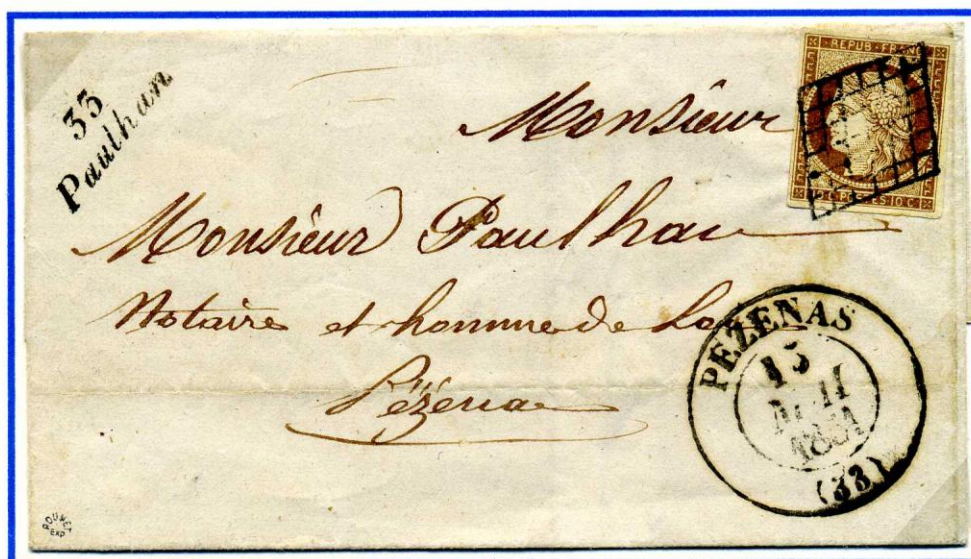 33
Paulhan
REPUB FRANC
10 C POSTES 10 C
Monsieur
Monsieur Paulhan
Notaire et homme de Loi
Pézenas
PEZENAS
15
1851
(33)
POUGET
exp